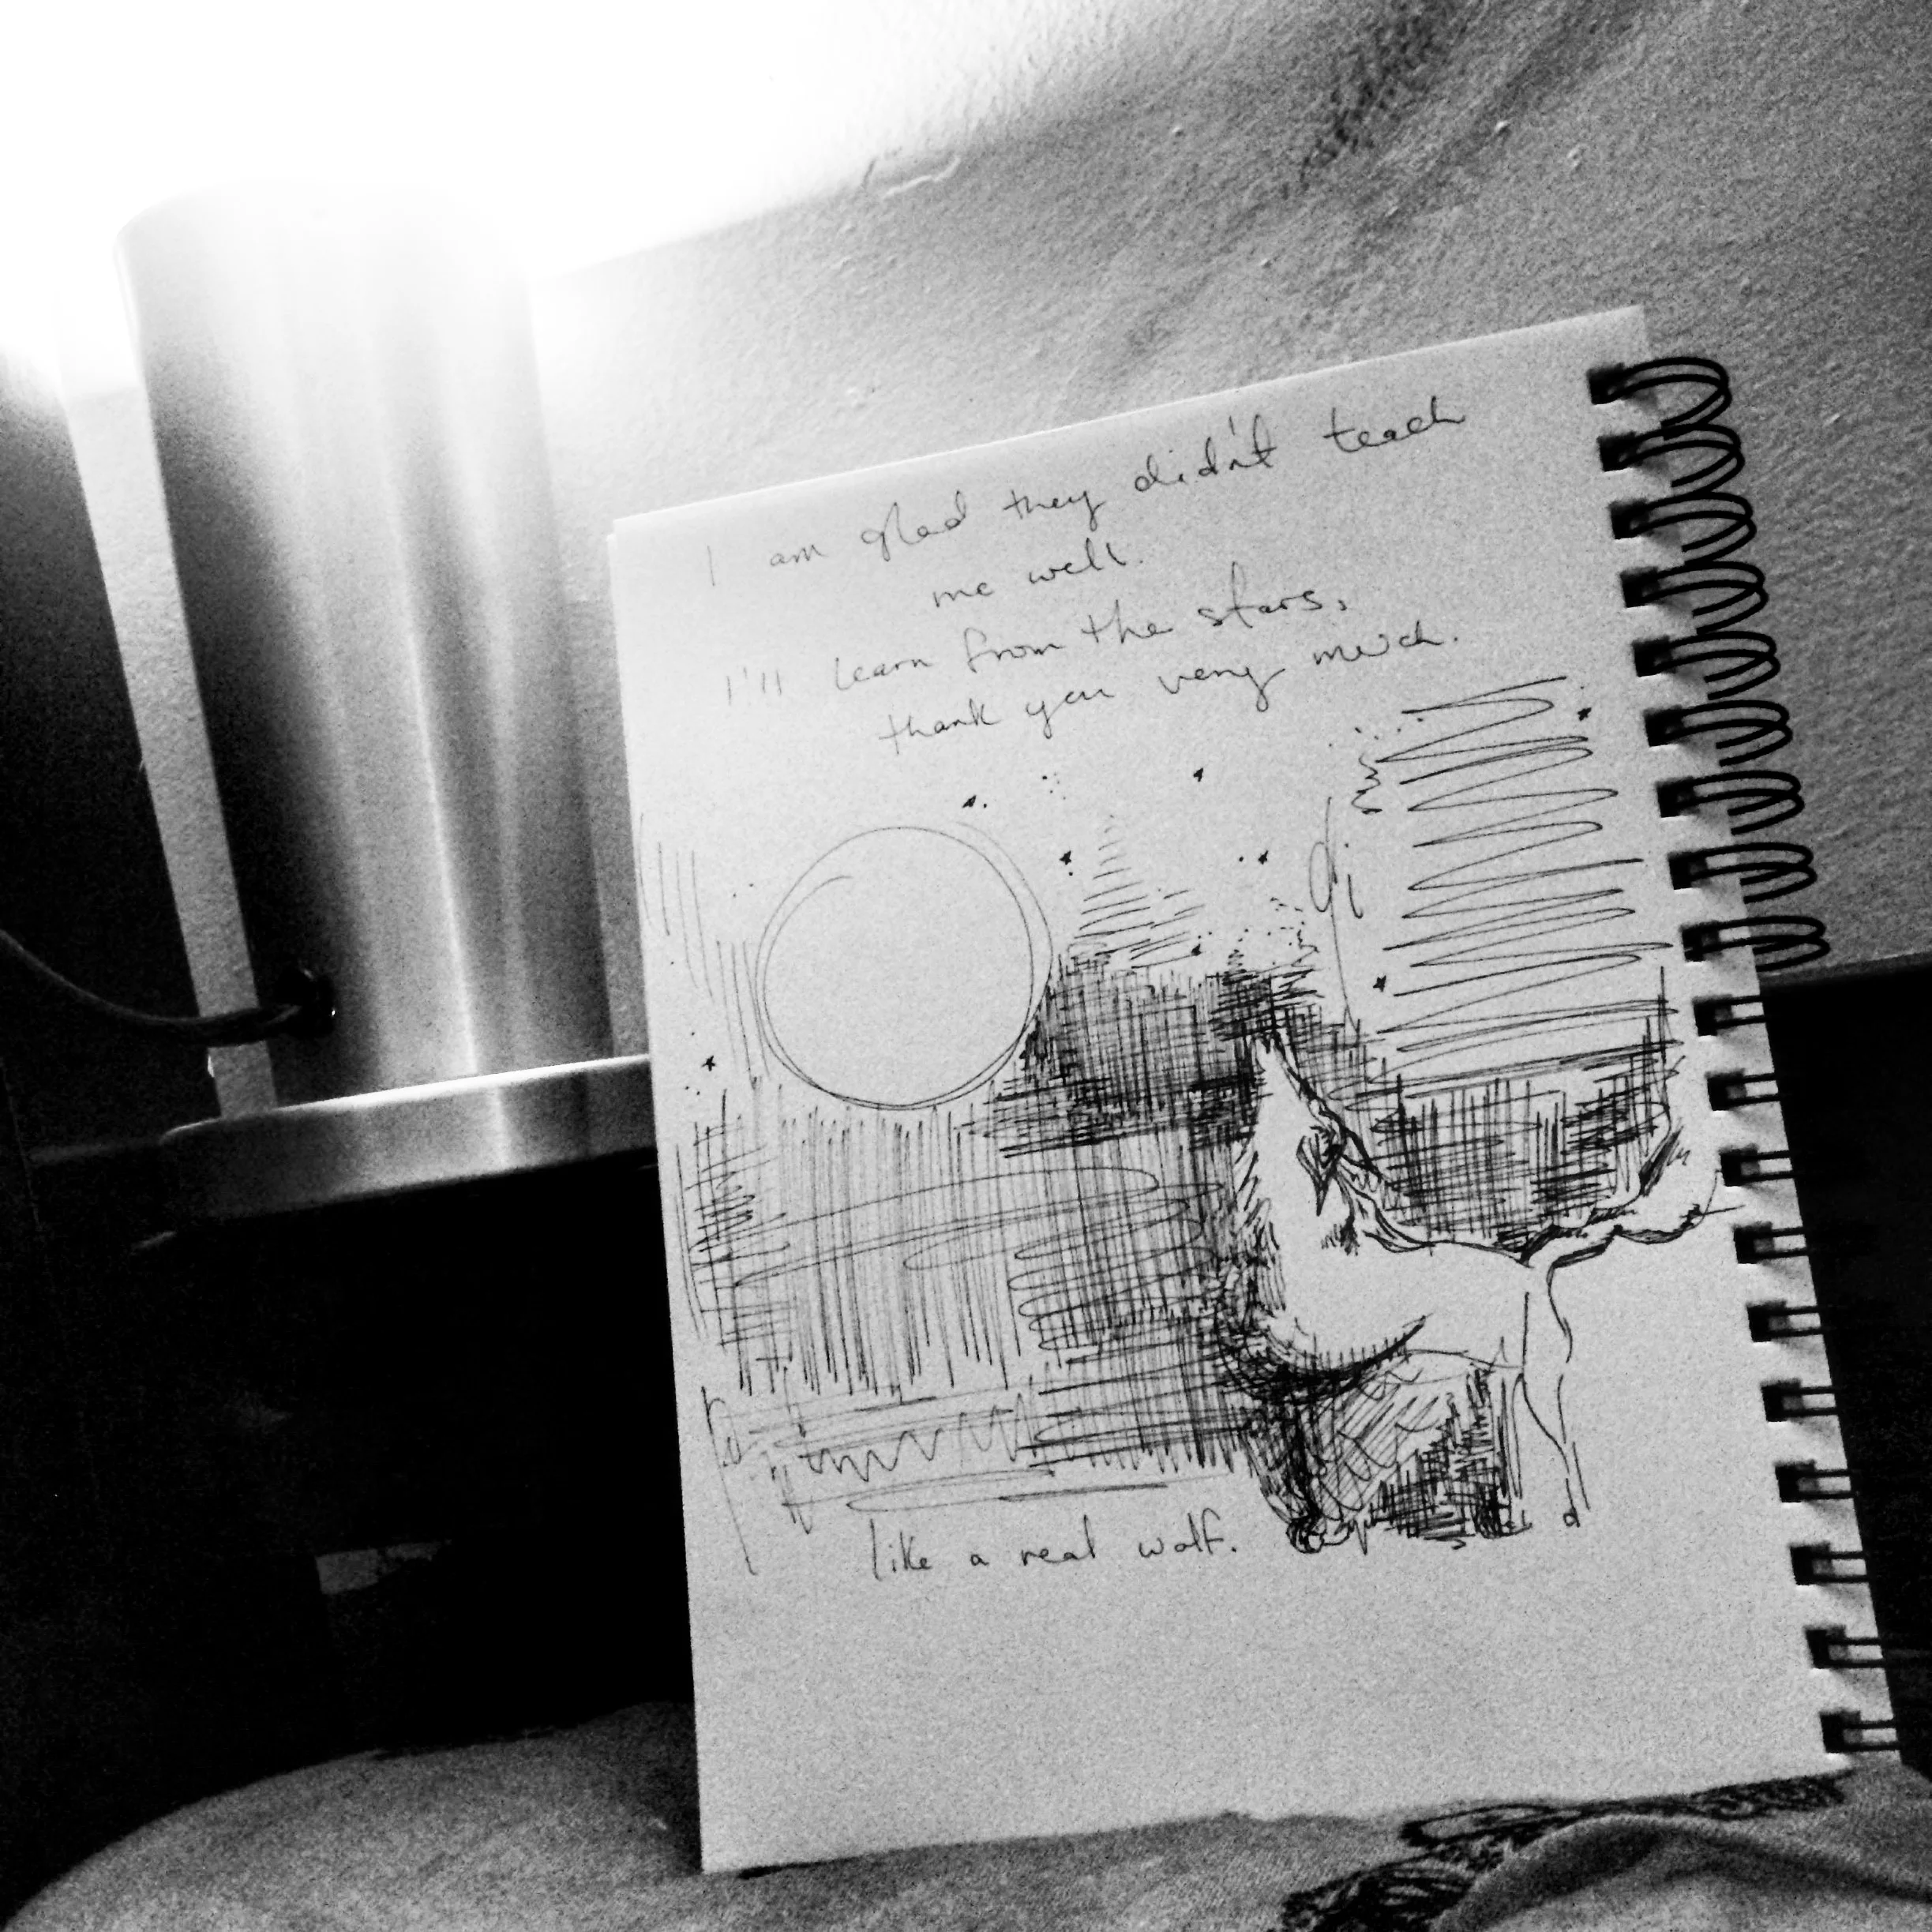 I am glad they didn't teach
me well.
I'll learn from the stars,
thank you very much.
like a real wolf.